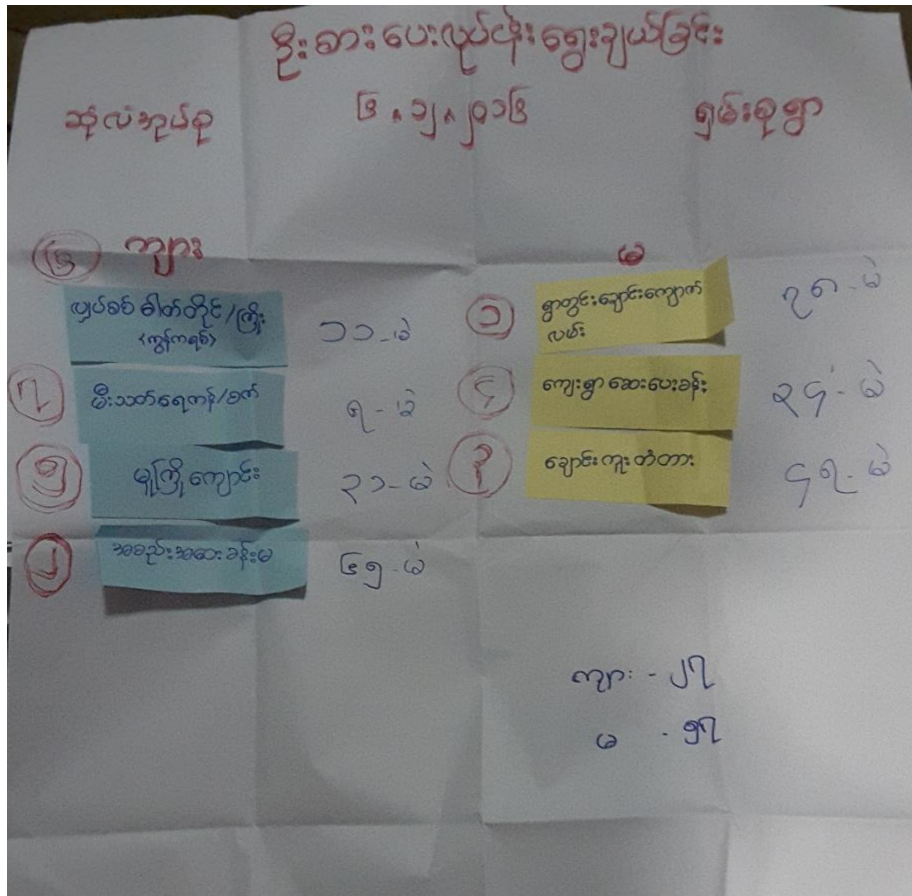 ဦးစားပေးလုပ်ငန်းရွေးချယ်ခြင်း
ဆုံလံအုပ်စု ၆.၁၂.၂၀၁၆ ရှမ်းစုရွာ
၆ ကျား
လျှပ်စစ် ဓါတ်တိုင်/ကြိုး
(ကွန်ကရစ်)
၁၁-မဲ
၇ မီးသတ်ရေကန်/စက်
၅ မူကြိုကျောင်း ၃၁-မဲ
၂ အစည်းအဝေးခန်းမ ၆၅-မဲ
မ
၁ ရွာတွင်းချောင်းကျောက်
လမ်း
၄ ကျေးရွာ ဆေးပေးခန်း ၃၄-မဲ
၃ ချောင်းကူးတံတား
ကျား - ၂၇
မ - ၅၇